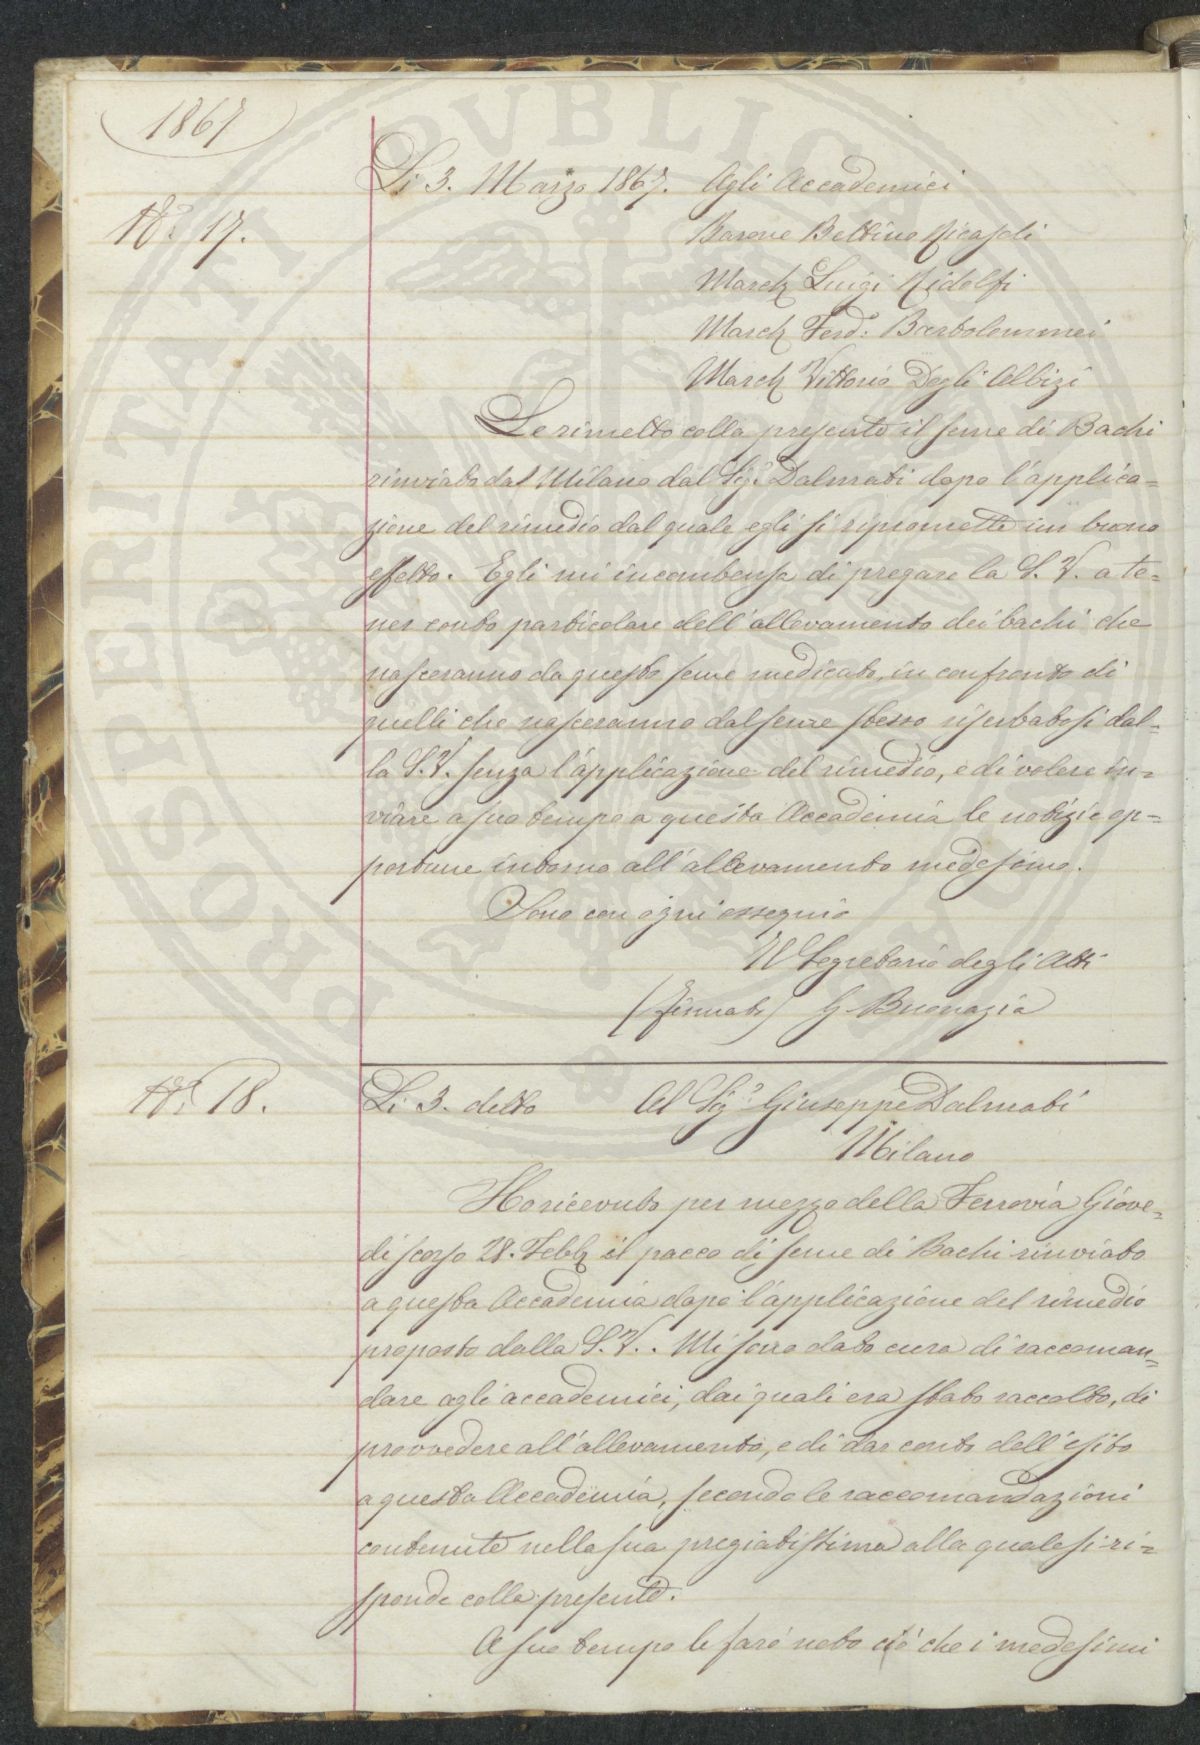 1867
Li 3. Marzo 1867. Agli Accademici
N.° 17.
Barone Bettino Ricasoli
March Luigi Ridolfi
March Ferd.° Bartolommei
March Vittorio Degli Albizi
Le rimetto colla presente il seme di Bachi
rinviato dal Milano dal Sig.r Dalmati dopo l'applica=
zione del rimedio dal quale egli si ripromette un buono
effetto. Egli mi incombensa di pregare la S. V. a te=
ner conto particolare dell'allevamento dei bachi che
nasceranno da questo seme medicato, in confronto di
quelli che nasceranno dal seme stesso riserbatosi dal=
la S. V. senza l'applicazione del rimedio, e di volere in=
viare a suo tempo a questa Accademia le notizie op=
portune intorno all'allevamento medesimo.
Sono con ogni ossequio
Il Segretario degli Atti
(Firmato) G. Buonazia
N.° 18.
Li 3. detto Al Sig.r Giuseppe Dalmati
Milano
Ho ricevuto per mezzo della Ferrovia Giove=
di scorso 28. Febb il pacco di seme di Bachi rinviato
a questa Accademia dopo l'applicazione del rimedio
proposto dalla S. V.. Mi sono dato cura di raccoman=
dare agli accademici, dai quali era stato raccolto, di
provvedere all'allevamento, e di dar conto dell'esito
a questa Accademia, secondo le raccomandazioni
contenute nella sua pregiatissima alla quale si ri=
sponde colla presente.
A suo tempo le farò noto ciò che i medesimi
PROSPERITATI PUBLICAE